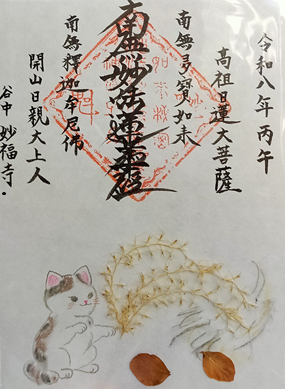 令和八年丙午
高祖日蓮大菩薩
南無多寶如来
南無妙法蓮華經
南無釋迦牟尼佛
開山日親大上人
谷中 妙福寺·